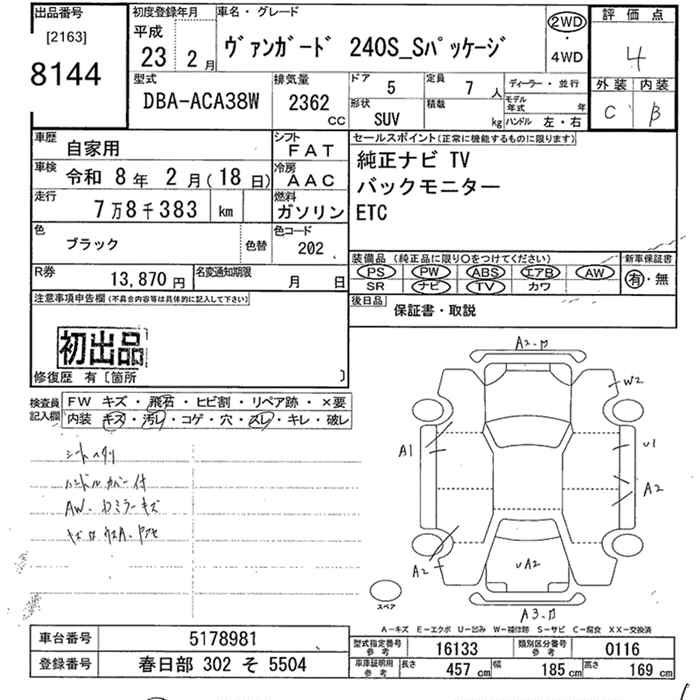 出品番号
[2163]
8144
初度登録年月
平成
23 年 2 月
車名・グレード
ヴァンガード 240S_Sパッケージ
2WD
・
4WD
評価点
4
外装 内装
C B
型式
DBA-ACA38W
排気量
2362
CC
ドア 5
形状 SUV
定員 7 人
積載 kg
ディーラー・並行
モデル年式 年
ハンドル 左・右
車歴 自家用
シフト FAT
車検 令和 8 年 2 月(18 日)
冷房 AAC
走行 7 万 8 千 383 km
燃料 ガソリン
色 ブラック
色替
色コード 202
R券 13,870 円
名変通知期限 月 日
セールスポイント(正常に機能するものに限ります)
純正ナビ TV
バックモニター
ETC
装備品 (純正品に限り○をつけてください)
新車保証書
PS PW ABS エアB AW
SR ナビ TV カワ
有・無
後日品 保証書・取説
注意事項申告欄(不具合内容等は具体的に記入して下さい)
初出品
修復歴 有〔箇所 〕
検査員記入欄
FW キズ・飛石・ヒビ割・リペア跡・×要
内装 キズ・汚レ・コゲ・穴・スレ・キレ・破レ
シートヘタリ
ハンドルカバー付
AW.
A2
W2
A1
U1
A2
A2
UA2
A3
スペア
A-キズ E-エクボ U-凹み W-補修跡 S-サビ C-腐食 XX-交換済
車台番号 5178981
登録番号 春日部 302 そ 5504
型式指定番号 参考 16133
類別区分番号 参考 0116
車庫証明用 参考
長さ 457 cm 幅 185 cm 高さ 169 cm